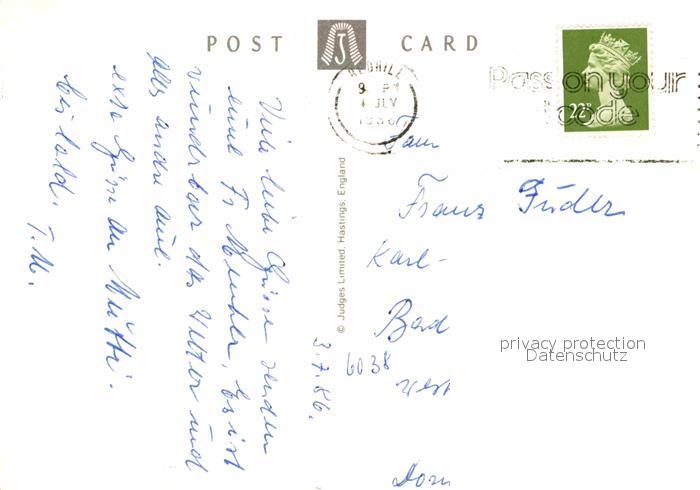 POST CARD
REDHILL
9 PM
JLY
1986
Pass on your
code
22P
Viele liebe Grüsse senden
wunderbar das Wetter und
alles andre auch.
extra Grüsse an Mutti.
bis bald.
T. M.
3.7.86.
© Judges Limited, Hastings, England
Fam
Franz
Karl-
6038
Bad
West
privacy protection
Datenschutz